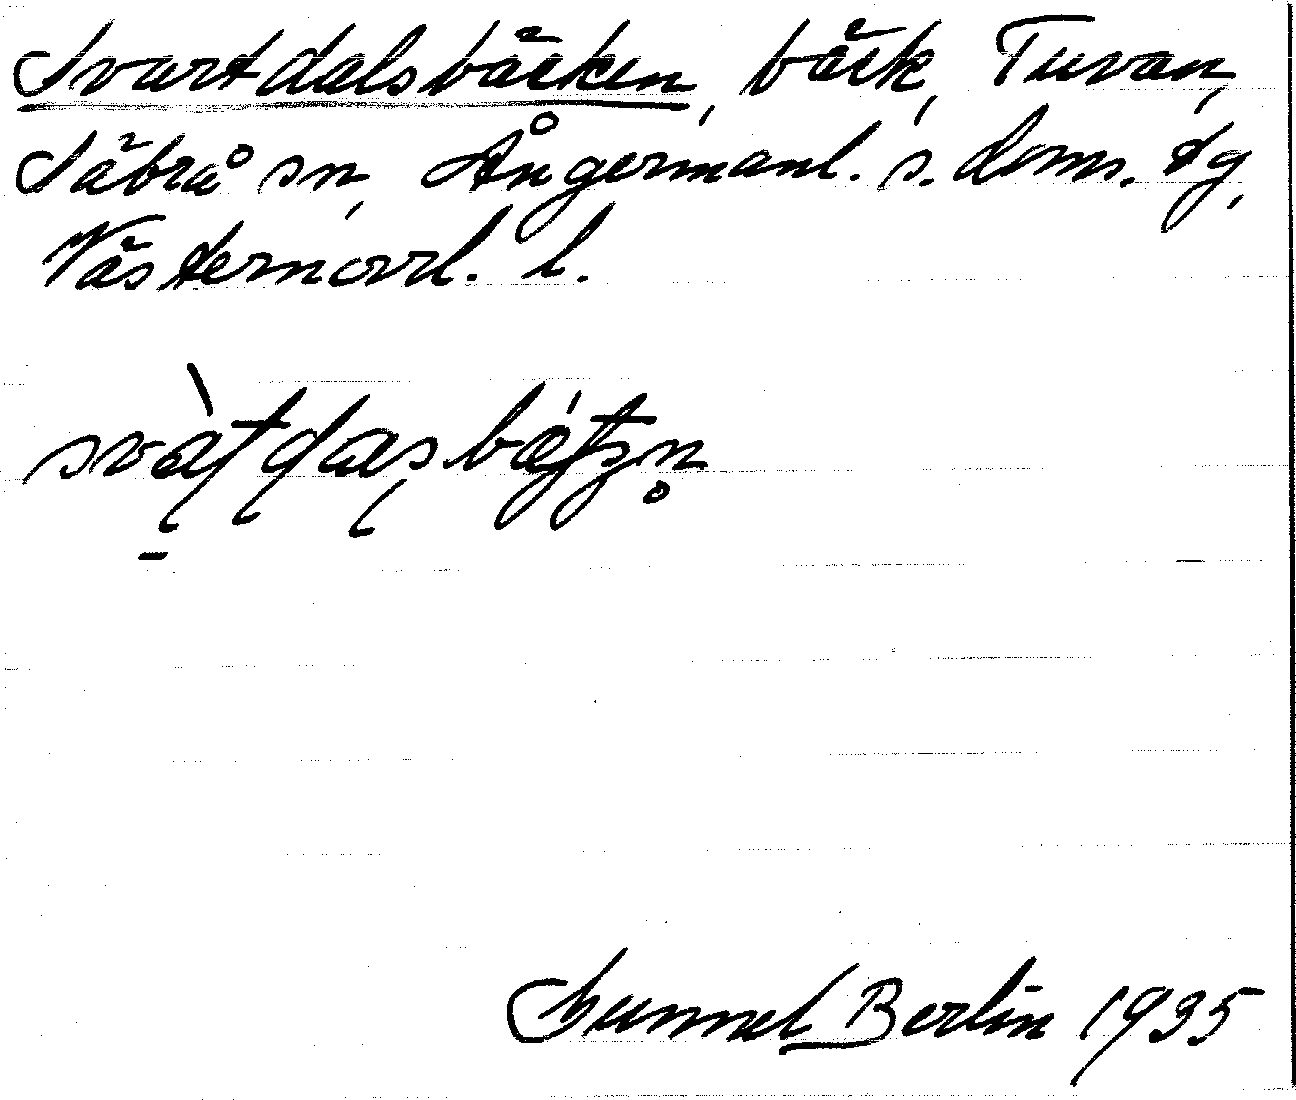 Svartdalsbäcken, bäck, Tuvan,
Säbrå sn, Ångermanl. s. doms. tg,
Västernorrl. l.
Gunnel Berlin 1935